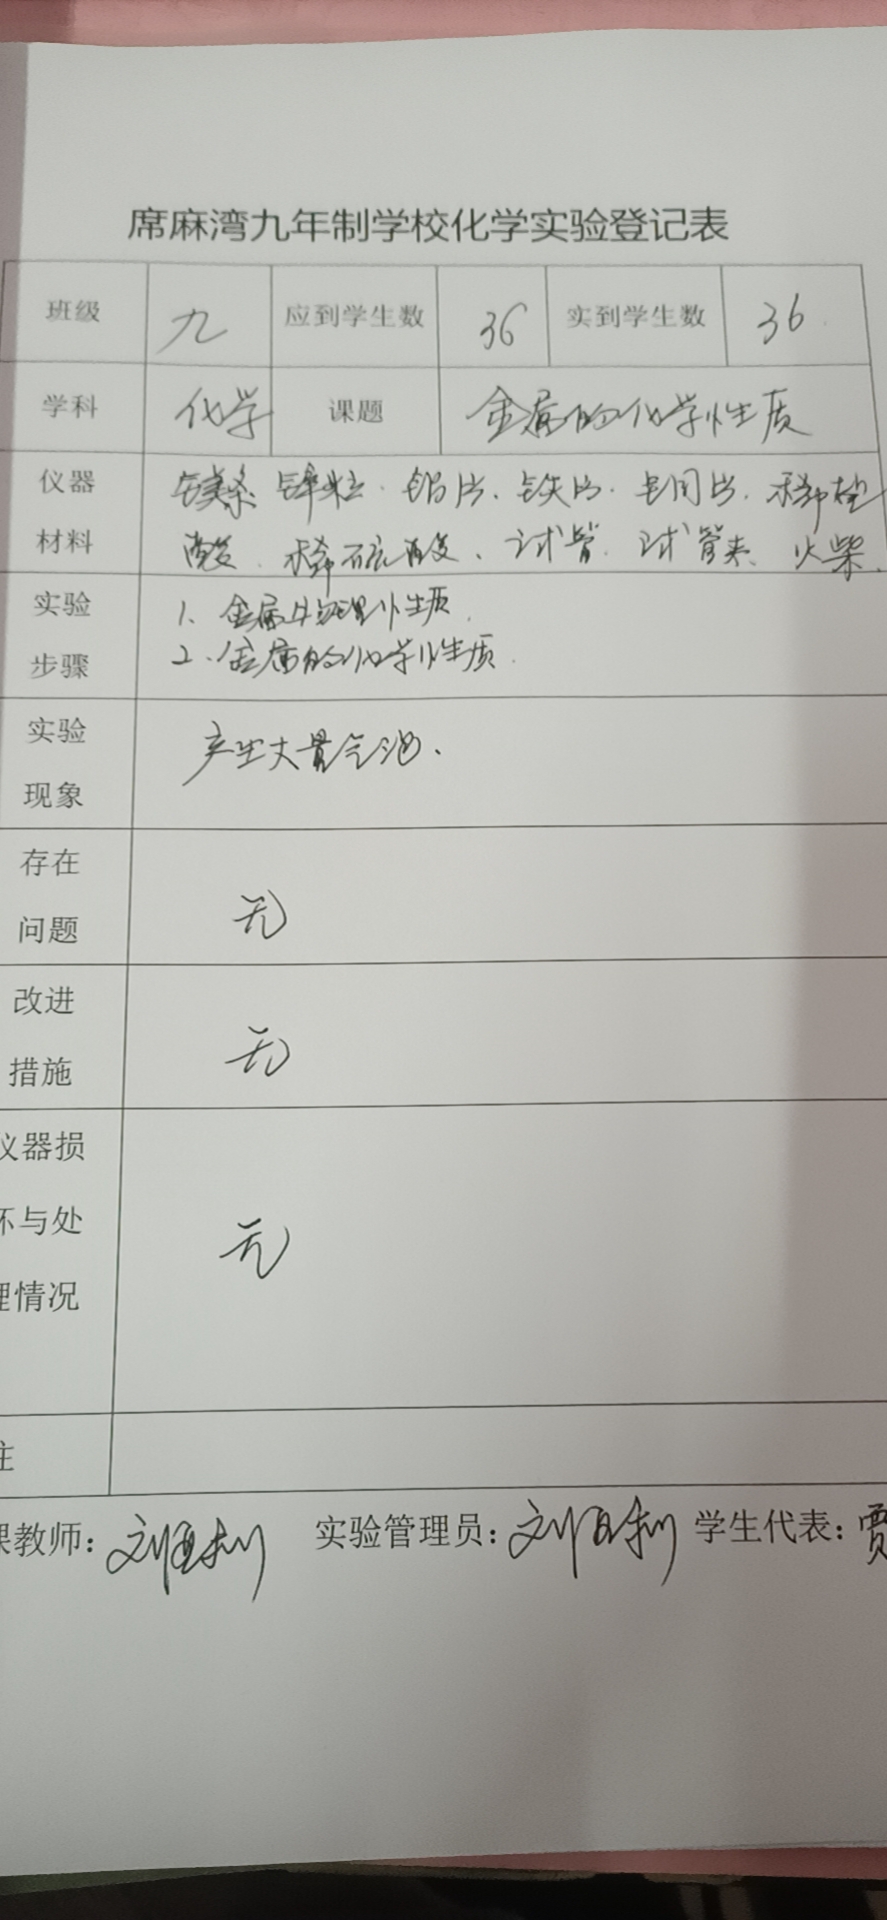 席麻湾九年制学校化学实验登记表
班级 九 应到学生数 36 实到学生数 36
学科 化学 课题 金属的化学性质
仪器 镁条 锌粒、铝片、铁片、铜片、稀盐
材料 酸、稀硫酸、试管、试管夹、火柴.
实验 1、金属物理性质.
步骤 2、金属的化学性质.
实验 产生大量气泡.
现象
存在
问题 无
改进
措施 无
仪器损
坏与处 无
理情况
注
课教师: 实验管理员: 学生代表: 贾